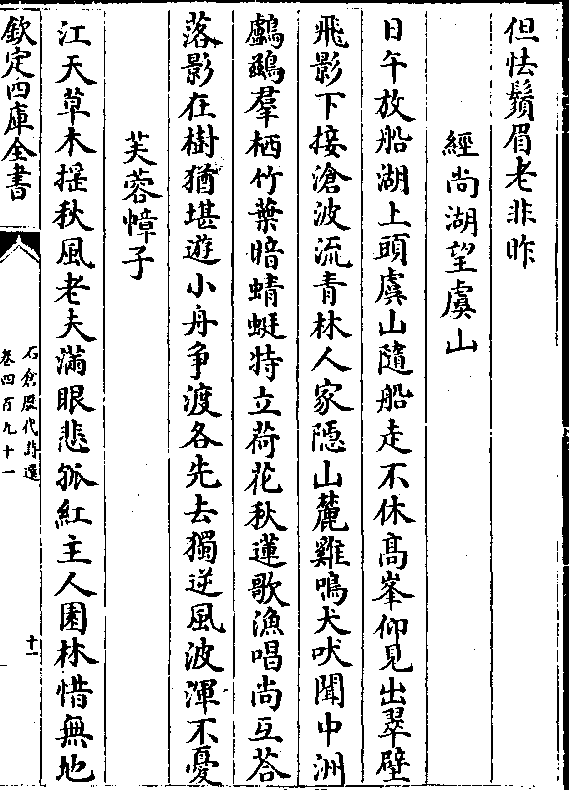 但怯鬚眉老非昨
經尚湖望虞山
日午放船湖上頭虞山隨船走不休髙峯仰見出翠壁
飛影下接滄波流青林人家隠山麓雞鳴犬吠聞中洲
鸕鷀羣栖竹葉暗蜻蜓特立荷花秋蓮歌漁唱尚互荅
落影在樹猶堪遊小舟争渡各先去獨逆風波渾不憂
芙蓉幛子
江天草木揺秋風老夫滿眼悲孤紅主人園林惜無地
欽定四庫全書
石倉歴代詩選
卷四百九十一
十一